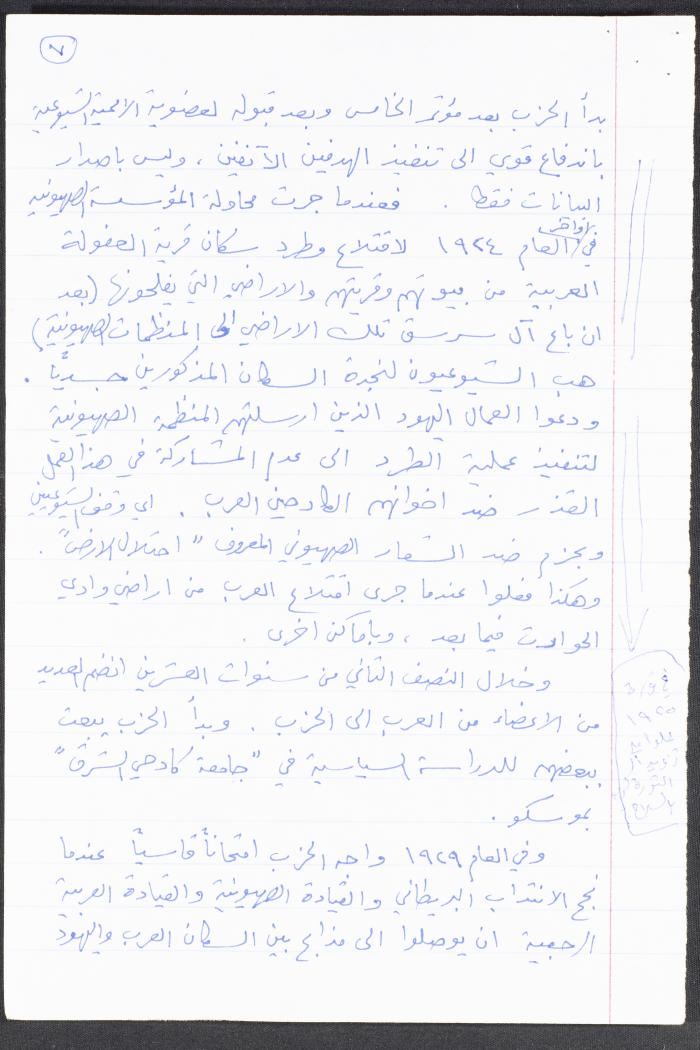 ٧
بدأ الحزب بعد مؤتمر الخامس وبعد قبوله لعضوية الاممية الشيوعية
باندفاع قوي الى تنفيذ الهدفين الآنفين ، وليس باصدار
البيانات فقط . فعندما جرت محاولة المؤسسة الصهيونية
في اواخر العام ١٩٢٤ لاقتلاع وطرد سكان قرية العفولة
العربية من بيوتهم وقريتهم والاراضي التي يفلحونها (بعد
ان باع آل سرسق تلك الاراضي الى المنظمات الصهيونية)
هب الشيوعيون لنجدة السكان المذكورين جسدياً .
ودعوا العمال اليهود الذين ارسلتهم المنظمة الصهيونية
لتنفيذ عملية الطرد الى عدم المشاركة في هذا العمل
القذر ضد اخوانهم الكادحين العرب . اي وقف الشيوعيين
وبحزم ضد الشعار الصهيوني المعروف "احتلال الارض" .
وهكذا فعلوا عندما جرى اقتلاع العرب من اراضي وادي
الحوادث فيما بعد ، وباماكن اخرى .
وخلال النصف الثاني من سنوات العشرين انضم العديد
من الاعضاء من العرب الى الحزب . وبدأ الحزب يبعث
ببعضهم للدراسة السياسية في "جامعة كادحي الشرق"
بموسكو .
وفي العام ١٩٢٩ واجه الحزب امتحاناً قاسياً عندما
نجح الانتداب البريطاني والقيادة الصهيونية والقيادة العربية
الرجعية ان يوصلوا الى مذابح بين السكان العرب واليهود
١٩٢٥
الثورة
بالسلاح